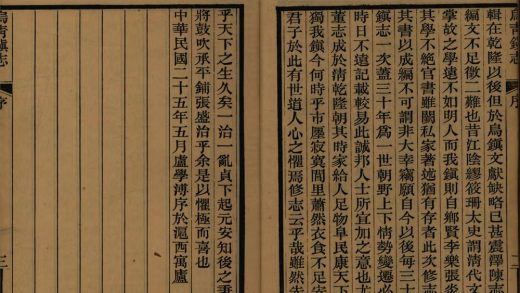 序
二
輯在乾隆以後但於烏鎮文獻缺略已甚震澤陳志
編文不足徵二難也昔江陰繆筱珊太史謂清代文
掌故之學遠不如明人而我鎮則自鄉賢李樂張炎
其學不絕官書雖闕私家著述猶有存者此次修志
其書以成編不可謂非大幸竊願自今以後每三十
鎮志一次蓋三十年爲一世朝野上下情勢變遷必
時日不遠記載較易此誠邦人士所宜加之意也尤
董志成於清乾隆朝其時家給人足物阜民康天下
獨我鎮今何時乎市廛寂寞閭里蕭然衣食不足安
君子於此有世道人心之懼焉修志云乎哉雖然先
乎天下之生久矣一治一亂貞下起元安知後之秉
將鼓吹承平鋪張盛治乎余是以懼極而喜也
中華民國二十五年五月盧學溥序於滬西寓廬
烏青鎮志
序
三